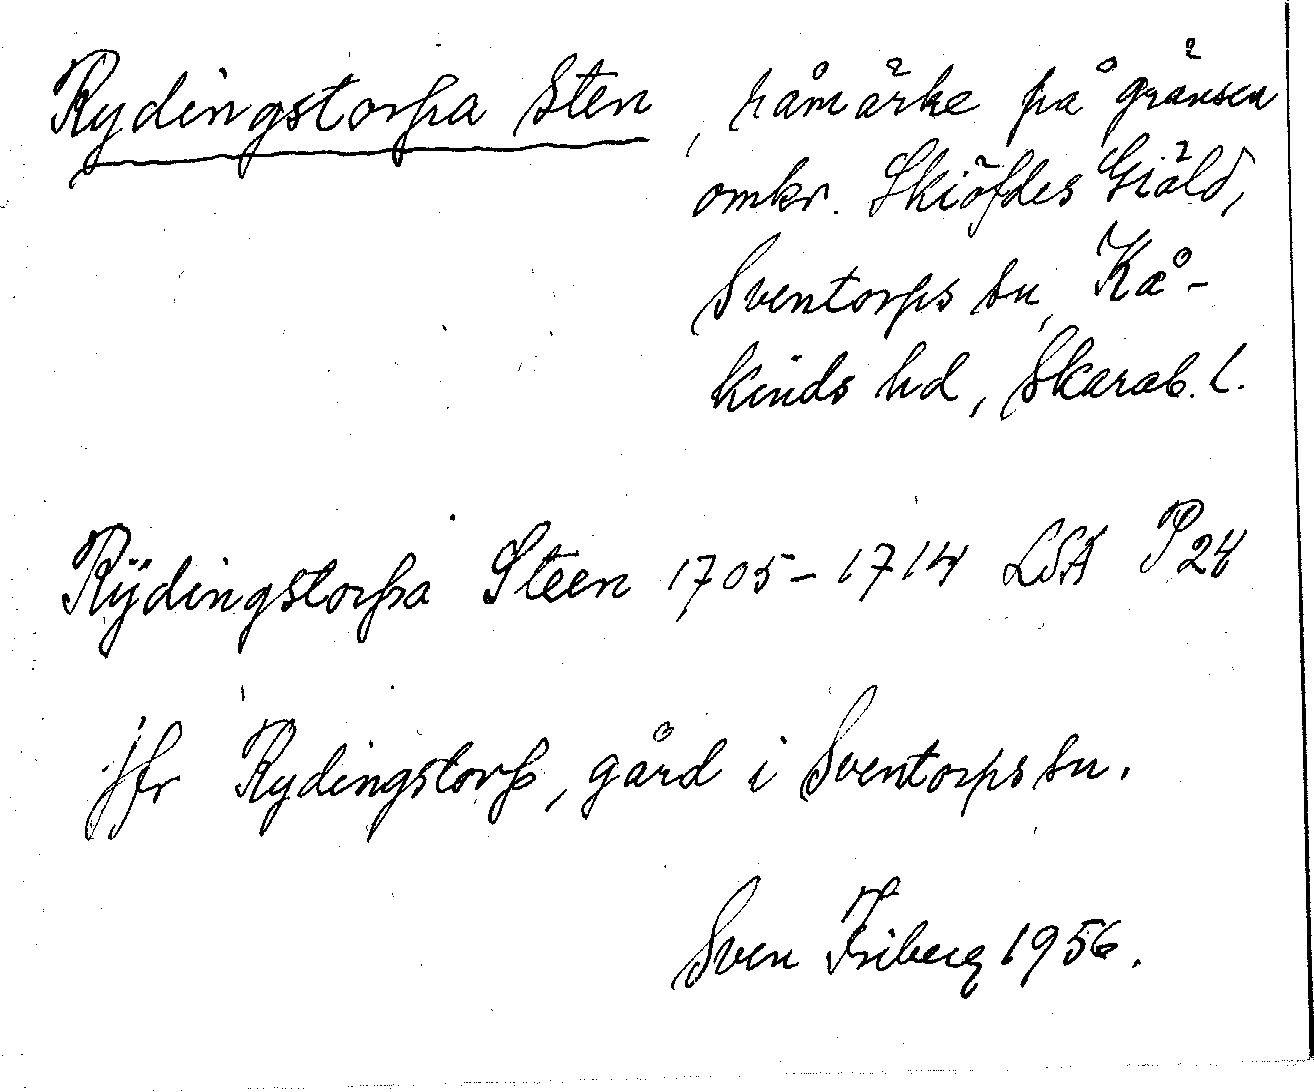 Rydingstorpa Sten, råmärke på gränsen
omkr. Skiöfdes Giäld,
Sventorps sn, Kå-
kinds hd, Skarab. l.
Rÿdingstorpa Steen 1705-1714 LSA P24
jfr Rydingstorp, gård i Sventorps sn.
Sven Friberg 1956.